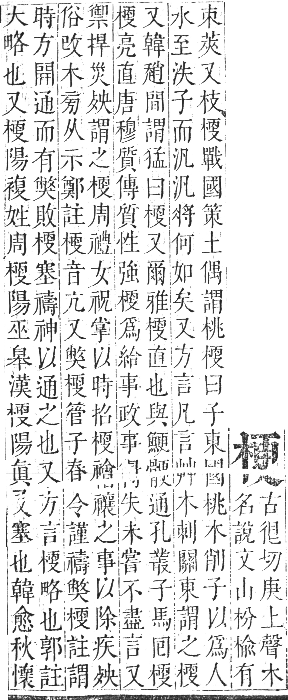 梗
古徑切庚上聲木
名說文山枌楡有
朿莢又枝梗戰國策土偶謂桃梗曰子東國桃木削子以爲人
水至泆子而汎汎將何如矣又方言凡言艸木刺關東謂之梗
又韓趙間謂猛曰梗又爾雅梗直也與鯁骾通孔叢子馬回梗
梗亮直唐穆質傳質性強梗爲給事政事得失未嘗不盡言又
禦捍災殃謂之梗周禮女祝掌以時招梗禬禳之事以除疾殃
俗攺木旁从示鄭註梗音亢又獘梗管子春令謹禱獘梗註謂
時方開通而有獘敗梗塞禱神以通之也又方言梗略也郭註
大略也又梗陽複姓周梗陽巫皋漢梗陽眞又塞也韓愈秋懷